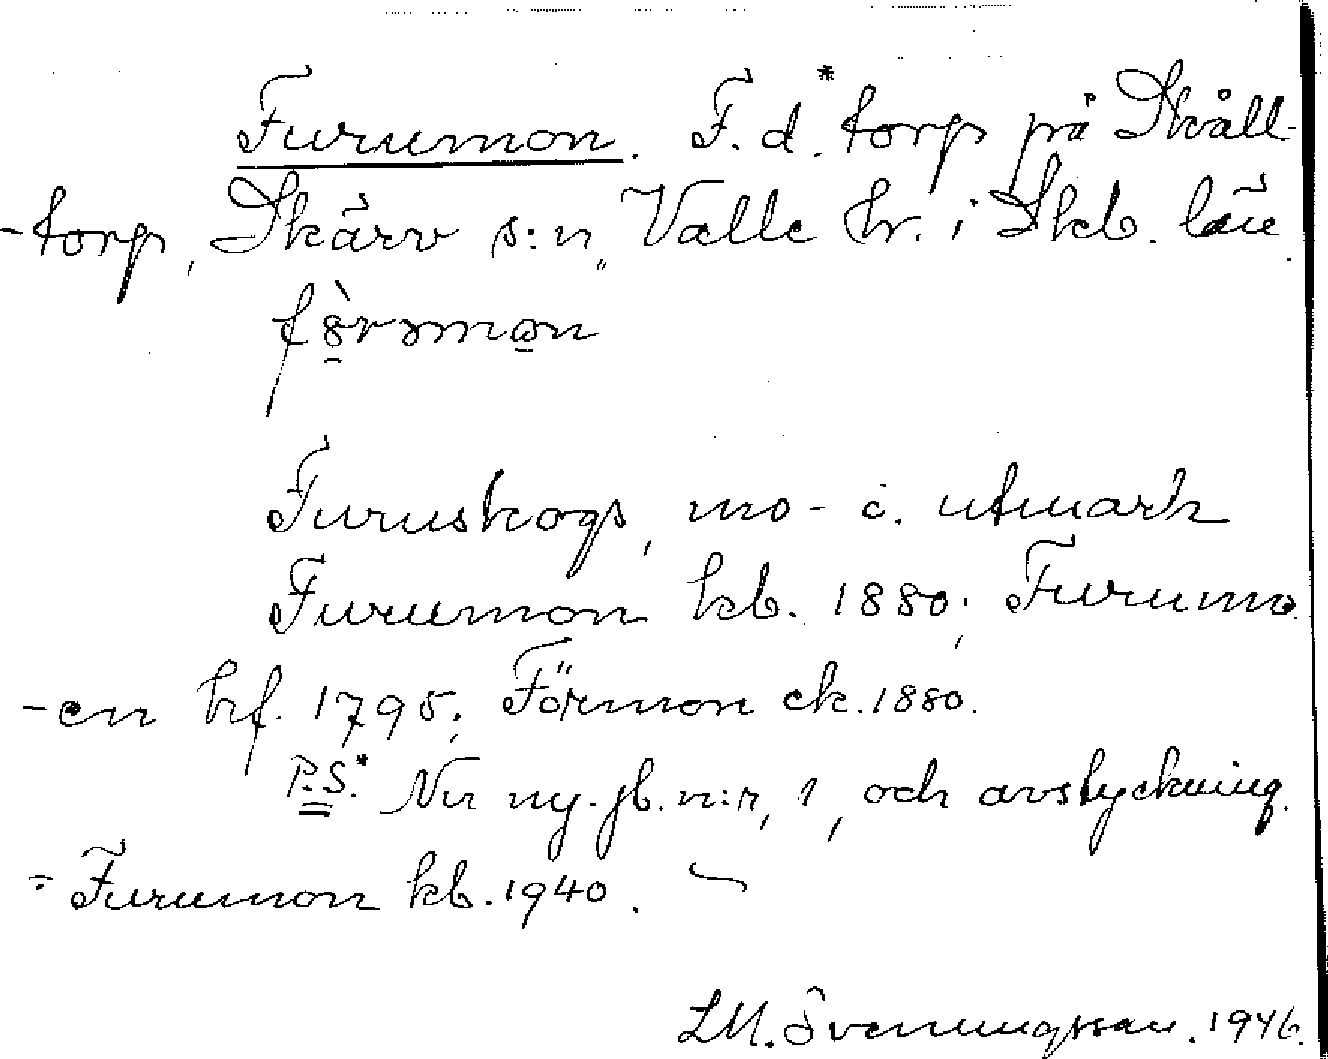 Furumon. F. d.* torp på Skåll-
-torp, Skärv s:n, Valle hr. i Skb. län.
Furuskogs, mo- o. utmark
Furumon kb. 1880; Furumo
-en hf. 1795; Förmon ek. 1880.
P.S.* Nu ny. jb. n:r, 1, och avstyckning.
= Furumon kb. 1940.
LM. Svenungsson. 1946.